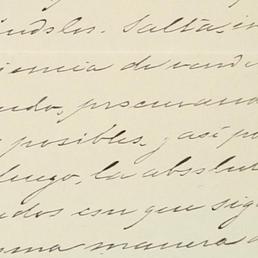 Salta, in
iencia de vend
udo, procurand
posibles, y así po
luego, la absolut
udos con que sig
sma manera d